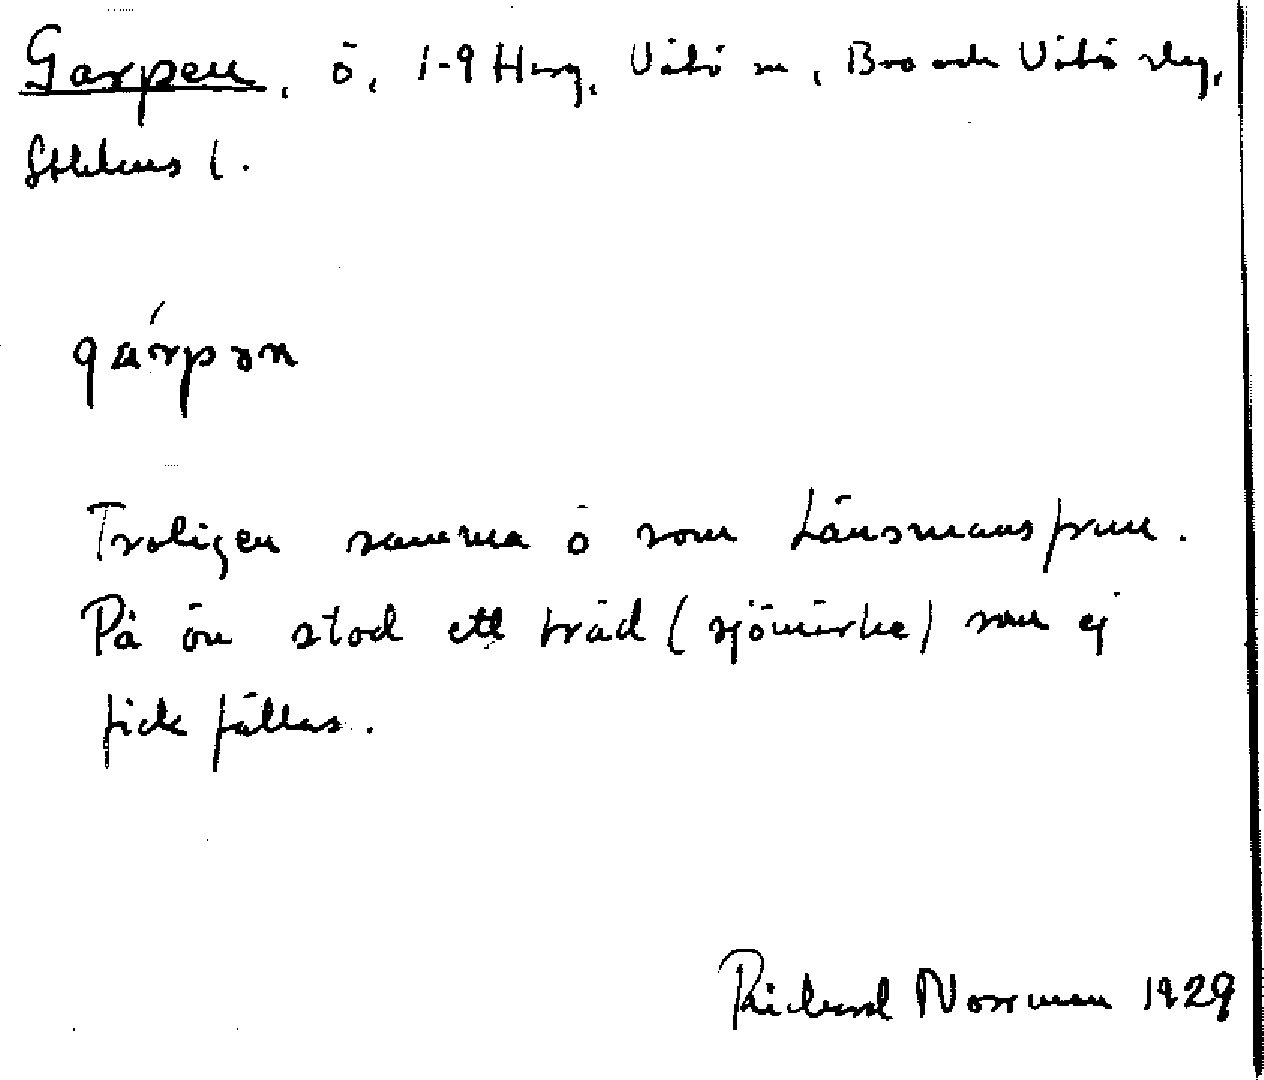 Garpen, ö, 1-9 Herg, Vätö sn, Bro och Vätö slg,
Sthlms l.
gárpən
Troligen samma ö som Länsmansprun.
På ön stod ett träd (sjömärke) som ej
fick fällas.
Richard Norrman 1929